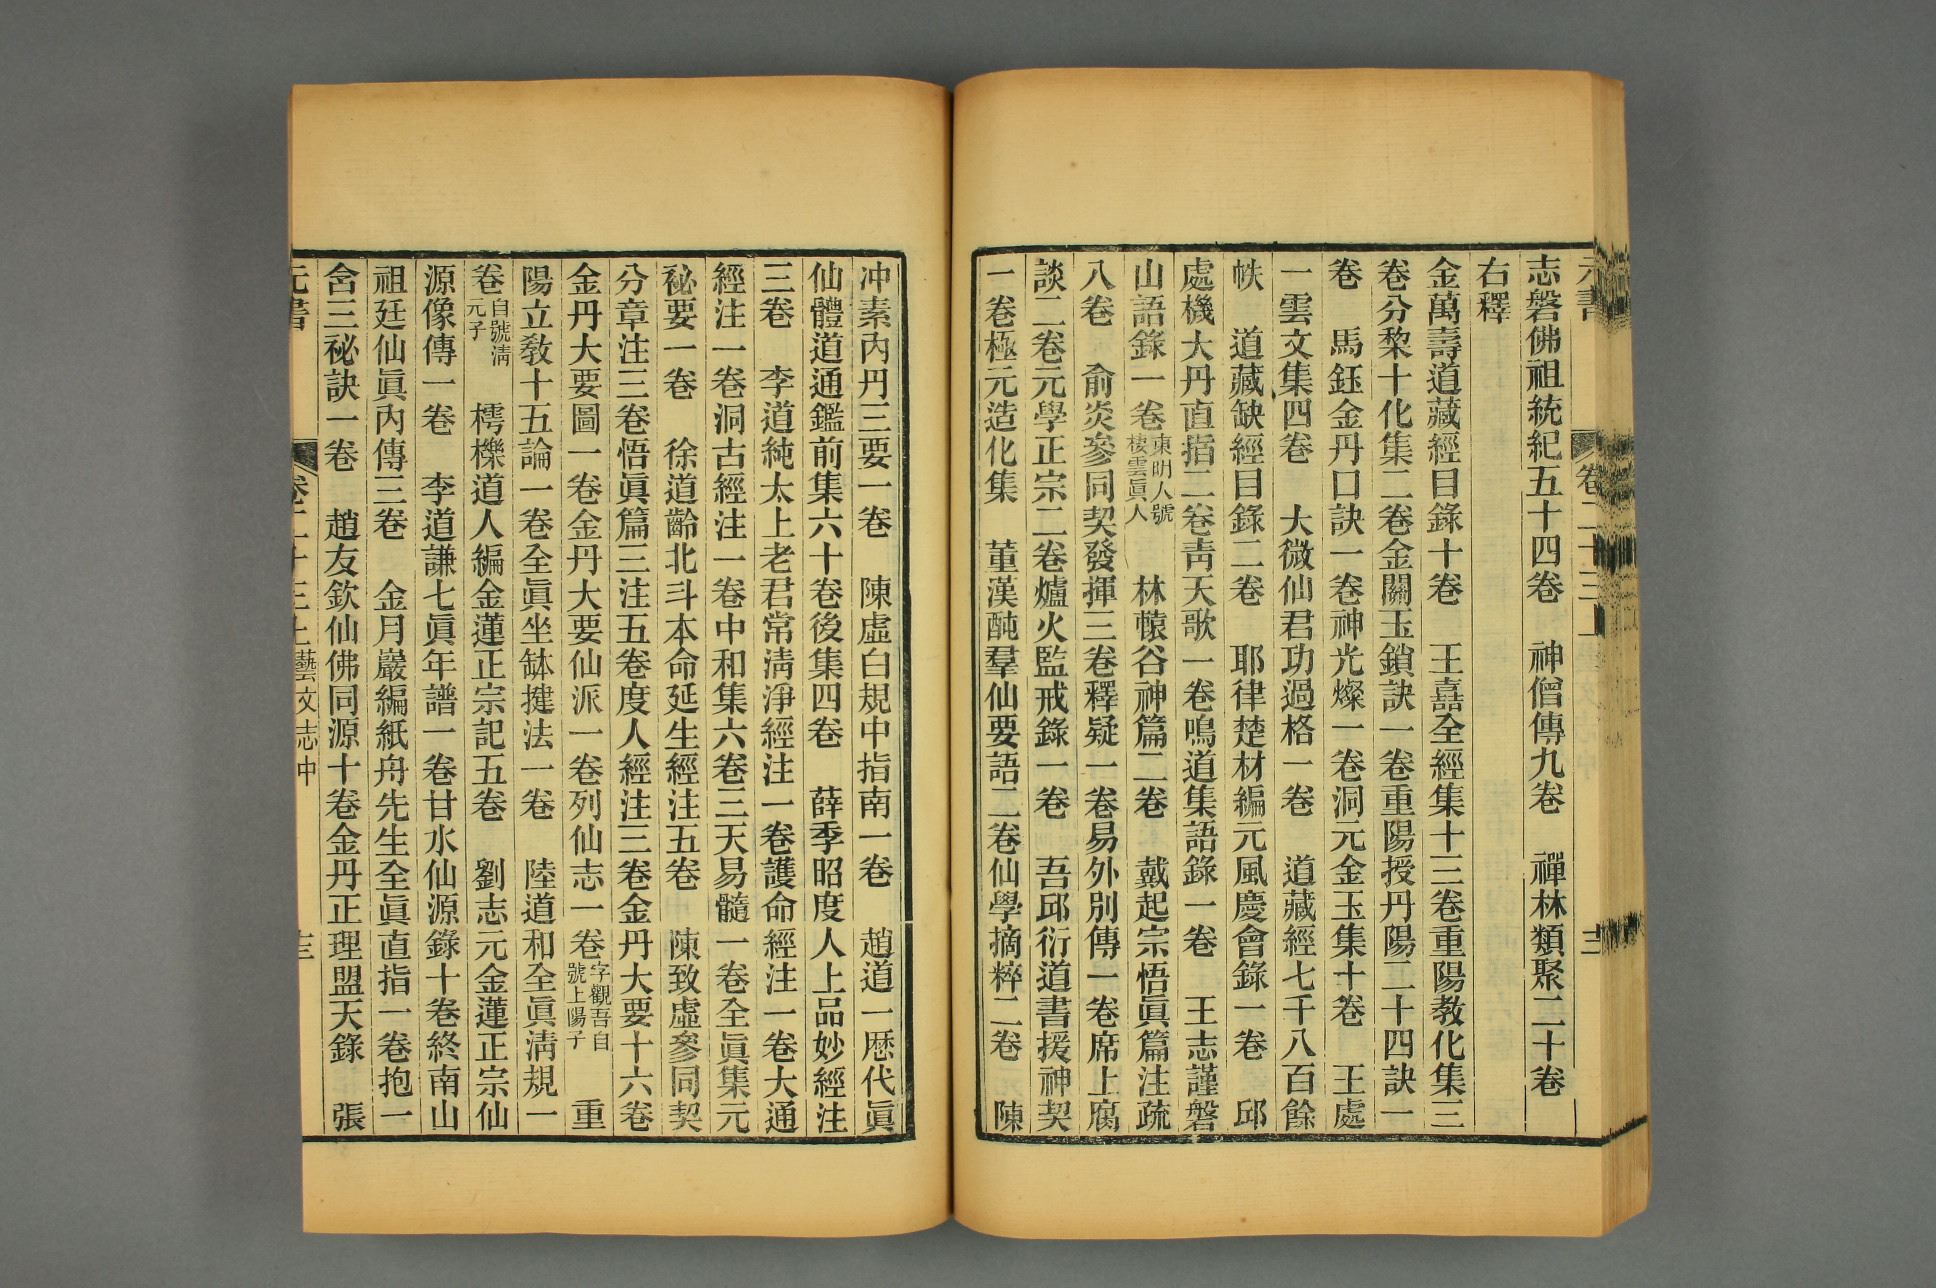 志磐佛祖統紀五十四卷　神僧傳九卷　禪林類聚二十卷
右釋
金萬壽道藏經目錄十卷　王嚞全經集十三卷重陽教化集三
卷分棃十化集二卷金關玉鎖訣一卷重陽授丹陽二十四訣一
卷　馬鈺金丹口訣一卷神光燦一卷洞元金玉集十卷　王處
一雲文集四卷　大微仙君功過格一卷　道藏經七千八百餘
帙　道藏缺經目錄二卷　耶律楚材編元風慶會錄一卷　邱
處機大丹直指二卷靑天歌一卷鳴道集語錄一卷　王志謹磐
山語錄一卷東明人號棲雲眞人　林轅谷神篇二卷　戴起宗悟眞篇注疏
八卷　俞炎參同契發揮三卷釋疑一卷易外別傳一卷席上腐
談二卷元學正宗二卷爐火監戒錄一卷　吾邱衍道書援神契
一卷極元造化集　董漢醇羣仙要語二卷仙學摘粹二卷　陳
冲素內丹三要一卷　陳虛白規中指南一卷　趙道一歷代眞
仙體道通鑑前集六十卷後集四卷　薛季昭度人上品妙經注
三卷　李道純太上老君常淸淨經注一卷護命經注一卷大通
經注一卷洞古經注一卷中和集六卷三天易髓一卷全眞集元
祕要一卷　徐道齡北斗本命延生經注五卷　陳致虛參同契
分章注三卷悟眞篇三注五卷度人經注三卷金丹大要十六卷
金丹大要圖一卷金丹大要仙派一卷列仙志一卷字觀吾自號上陽子　重
陽立教十五論一卷全眞坐鉢捷法一卷　陸道和全眞淸規一
卷自號淸元子　樗櫟道人編金蓮正宗記五卷　劉志元金蓮正宗仙
源像傳一卷　李道謙七眞年譜一卷甘水仙源錄十卷終南山
祖廷仙眞內傳三卷　金月巖編紙舟先生全眞直指一卷抱一
舍三祕訣一卷　趙友欽仙佛同源十卷金丹正理盟天錄　張
元書　卷二十三上藝文志中　十三